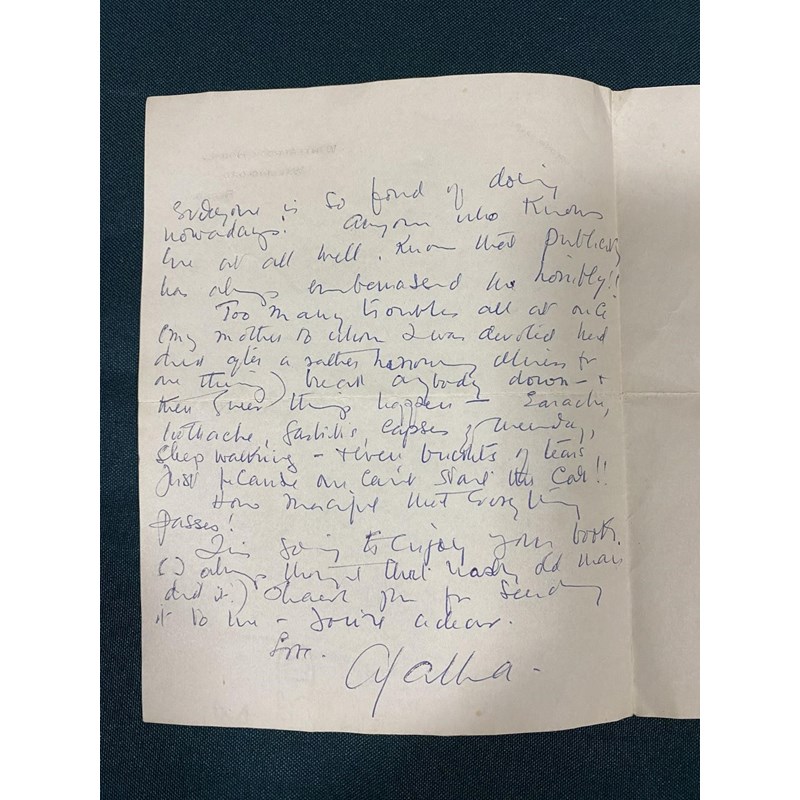 Everyone is so fond of doing
nowadays! Anyone who knows
me at all well, know that publicity
has always embarrassed me horribly!!
Too many troubles all at once
(my mother to whom I was devoted had
died after a rather harrowing illness for
one thing) break anybody down - &
then queer things happen - Earache,
toothache, gastritis, lapses of memory,
sleep walking - & even buckets of tears
just because one can't start the car!!
How merciful that everything
passes!
I'm going to enjoy your book.
(I always thought that nasty old man
did it.) Thank you for sending
it to me - You're a dear.
Love.
Agatha -